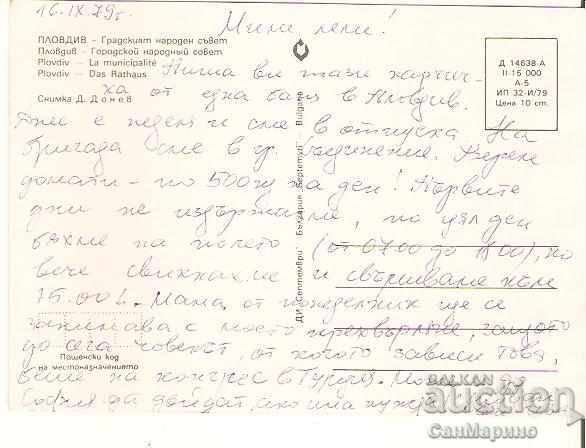 16.IX.79г.
Мили лели!
ПЛОВДИВ – Градският народен съвет
Пловдив – Городской народный совет
Plovdiv – La municipalité
Plovdiv – Das Rathaus
Снимка Д. Донев
Д 14638-А
II-15 000
А-5
ИП 32-И/79
Цена 10 ст.
Пиша ви тази картич-
ка от една баня в Пловдив.
Днес е неделя и сме в отпуска. На
бригада сме в гр. Съединение. Берем
домати – по 500 кг на ден! Първите
дни не издържахме, по цял ден
бяхме на полето (от 07.00 до 18.00), но
вече свикнахме и свършваме към
15.00 ч. Мама от понеделник ще се
занимава с моето прехвърляне, защото
до сега човекът, от когото зависи това,
беше на конгрес в Турция.
София да дойдат, ако има нужда
ДИ „Септември" България Septemvri Bulgarie
Пощенски код
на местоназначението
BALKAN
auction
СанМарино